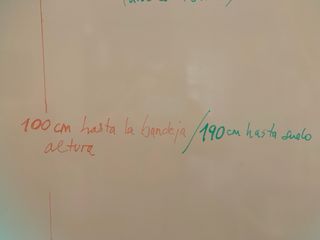 100 cm hasta la bandeja / 190 cm hasta suelo
altura